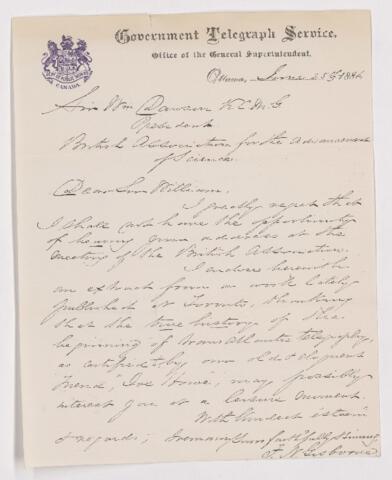 Government Telegraph Service,
Office of the General Superintendent.
CANADA
Ottawa, 188
Sir Wm Dawson K.C.M.G
President
British Association for the Advancement
of Science
Dear Sir William,
I greatly regret that
I shall not have the opportunity
of hearing your address at the
meeting of the British Association.
I enclose herewith
an extract from a work lately
published at Toronto, thinking
that the true history of the
beginning of transatlantic telegraphy,
as certified by our old & eloquent
friend, "Joe Howe", may possibly
interest you at a leisure moment.
With kindest esteem
& regards, I remain yours faithfully & sincerely
F. N. Gisborne